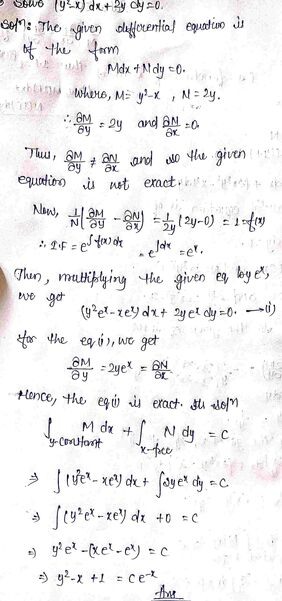 Solve (y²-x) dx + 2y dy = 0.
Solⁿ: The given differential equation is
of the form
Mdx + Ndy = 0.
Where, M = y²-x , N = 2y.
∴ ∂M/∂y = 2y and ∂N/∂x = 0.
Thus, ∂M/∂y ≠ ∂N/∂x and so the given
equation is not exact.
Now, 1/N (∂M/∂y - ∂N/∂x) = 1/2y (2y-0) = 1 = f(x)
∴ I.F = e^∫f(x)dx = e^∫dx = eˣ.
Then, multiplying the given eq by eˣ,
we get
(y²eˣ - xeˣ) dx + 2y eˣ dy = 0. → (i)
for the eq (i), we get
∂M/∂y = 2yeˣ = ∂N/∂x
Hence, the eq (i) is exact. Its solⁿ
∫ M dx + ∫ N dy = c
y-constant x-free
⇒ ∫ (y²eˣ - xeˣ) dx + ∫ 2yeˣ dy = c.
⇒ ∫ (y²eˣ - xeˣ) dx + 0 = c
⇒ y²eˣ - (xeˣ - eˣ) = c
⇒ y² - x + 1 = c e⁻ˣ
Ans